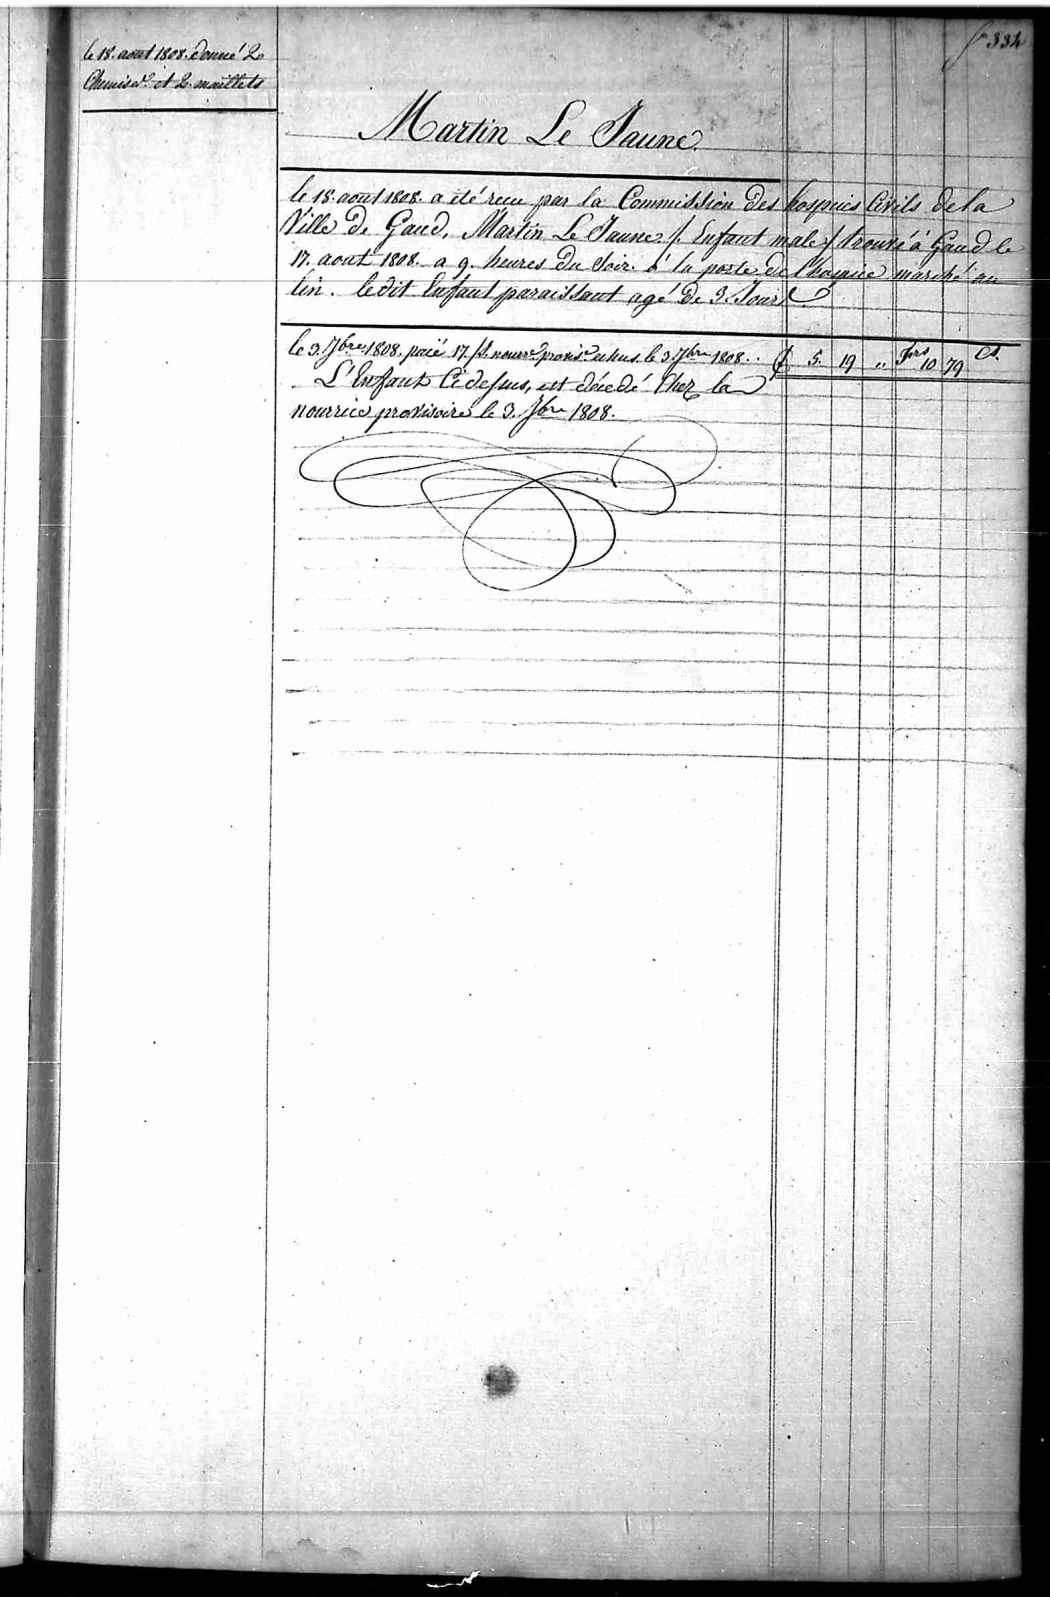 fo 334
le 18. aout 1808. donné 2
Chemises. et 2. maillets
Martin Le Jaune.
le 18. aout 1808. a été recu par la Commission des hospices Civils de la
Ville de Gand, Martin Le Jaune /. Enfant male ./ trouvé à Gand le
17. aout 1808. a 9. heures du Soir. à la porte de l'hospice marché au
lin. ledit Enfant paraissant agé de 3. Jours
le 3. 7bre 1808. paié 17. js. nourre. provisre. echus. le 3. 7bre 1808. . £ 5. 19 „ Frs 10 79 Cs.
L'Enfant Cidessus, est décedé Chez la
nourrice provisoire le 3. 7bre 1808.